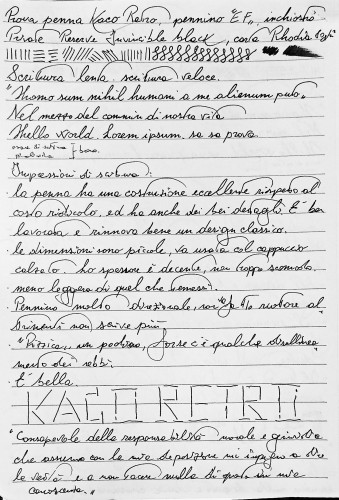 Prova penna Kaco Retro, pennino "EF", inchiostro
Private Reserve Invincible black, carta Rhodia
Scrittura lenta, scrittura veloce.
"Homo sum nihil humani a me alienum puto"
Nel mezzo del cammin di nostra vita
Hello World. Lorem ipsum. sa sa prova
Impressioni di scrittura:
· la penna ha una costruzione eccellente rispetto al
costo ridicolo, ed ha anche dei bei dettagli. È ben
lavorata e rinnova bene un design classico.
· le dimensioni sono piccole, va usata col cappuccio
calzato. lo spessore è decente, non troppo scomoda
meno leggera di quel che pensassi.
· Pennino molto direzionale, non ruotare al
trimenti non scrive più.
· "Pizzica" un pochino, forse c'è qualche disallinea
mento dei rebbi.
· È bella.
KACO RETRO
"Consapevole della responsabilità morale e giuridica
che assumo con la mia deposizione mi impegno a dire
la verità e a non tacere nulla di quanto sia mia
conoscenza."